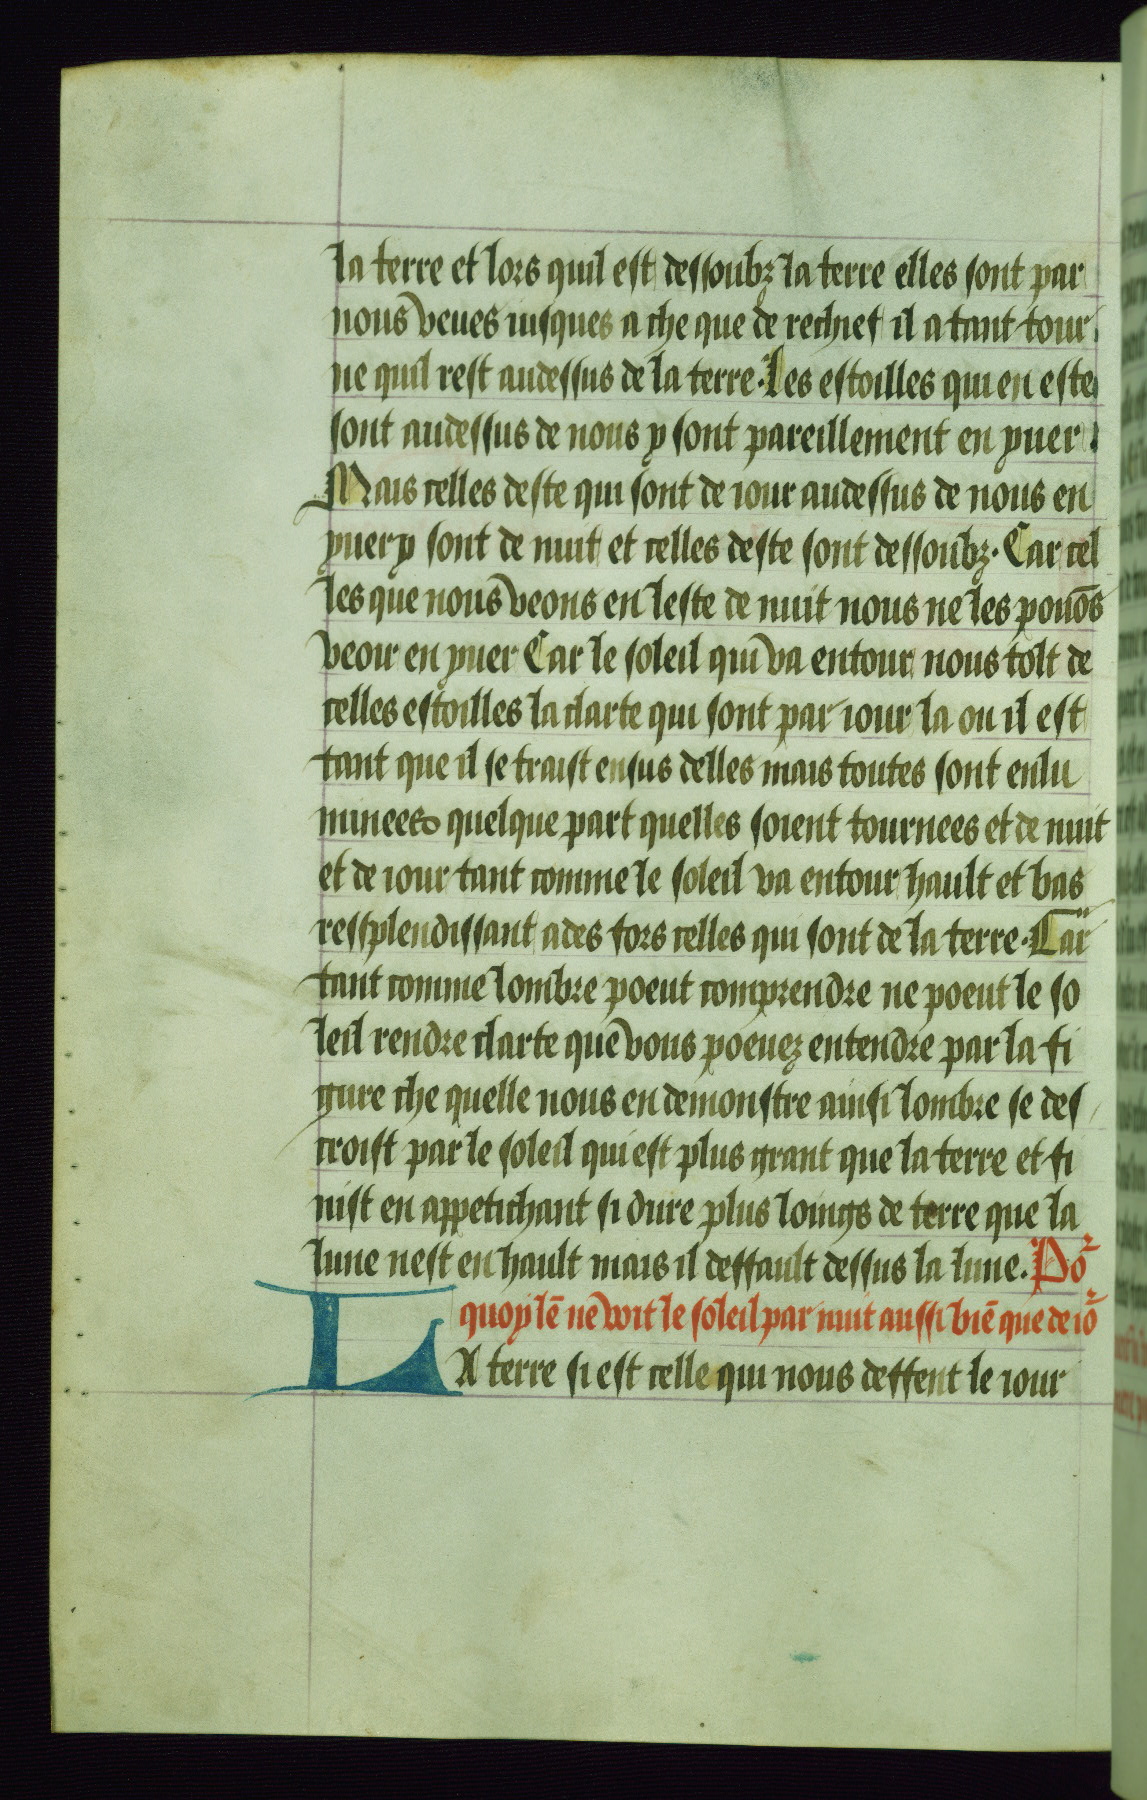 la terre et lors quil est dessoubz la terre elles sont par
nous veues iusques a che que de rechief il a tant tour
ne quil rest audessus de la terre. Les estoilles qui en este
sont audessus de nous y sont pareillement en yuer.
Mais celles deste qui sont de iour audessus de nous en
yuer y sont de nuit et celles deste sont dessoubz. Car cel
les que nous veons en leste de nuit nous ne les pouōs
veoir en yuer Car le soleil qui va entour nous tolt de
celles estoilles la clarte qui sont par iour la ou il est
tant que il se traist ensus delles mais toutes sont enlu
minees quelque part quelles soient tournees et de nuit
et de iour tant comme le soleil va entour hault et bas
resplendissant ades fors celles qui sont de la terre. Car
tant comme lombre poeut comprendre ne poeut le so
leil rendre clarte que vous poeuez entendre par la fi
gure che quelle nous en demonstre ainsi lombre se des
croist par le soleil qui est plus grant que la terre et fi
nist en appetichant si dure plus loings de terre que la
lune nest en hault mais il deffault dessus la lune. Po᷑
quoy lē ne voit le soleil par nuit aussi biē que de io᷑
LA terre si est celle qui nous deffent le iour